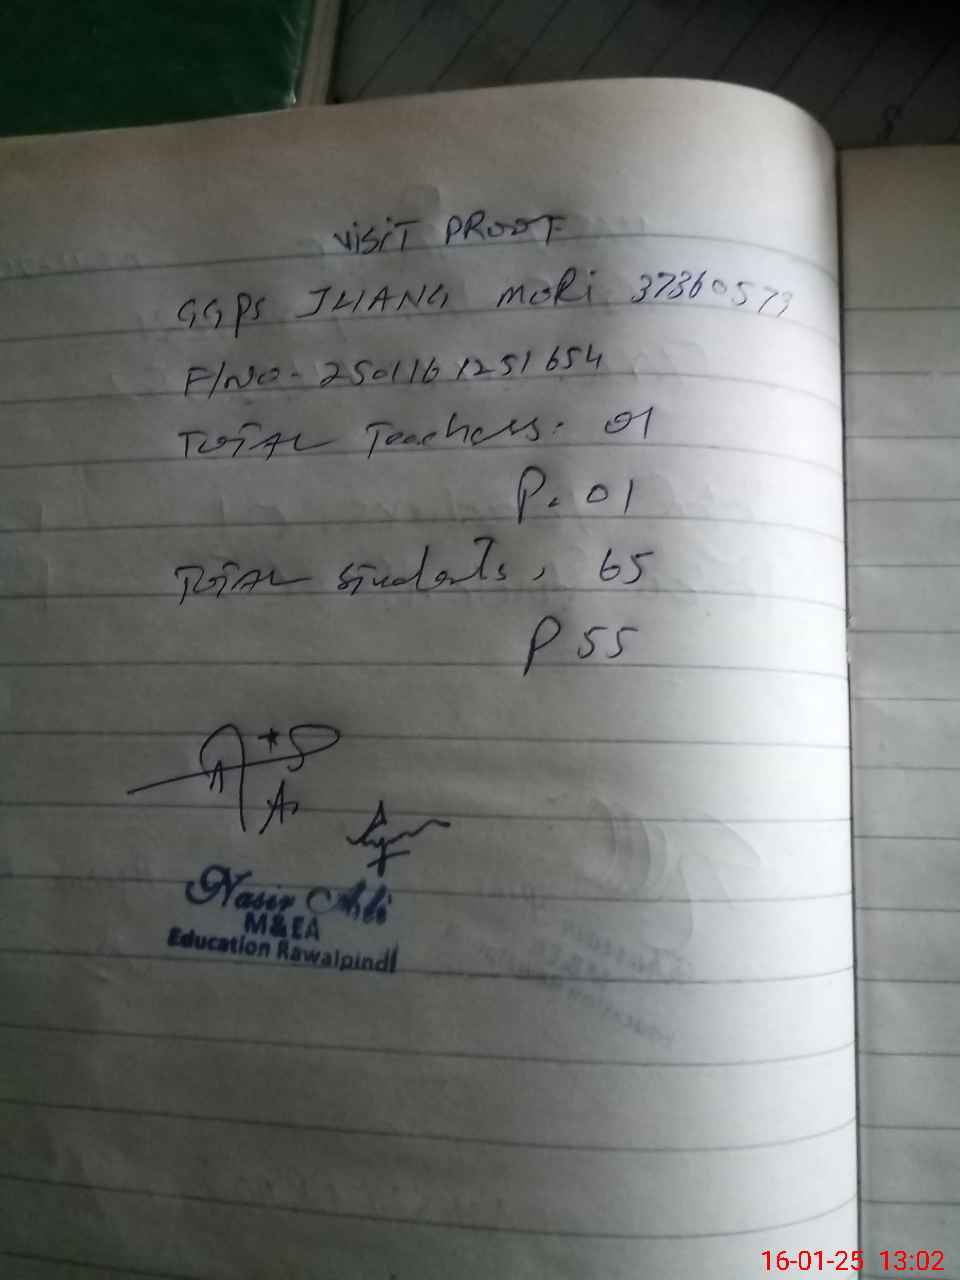 VISIT PROOF
GGPS JHANG MORI 37360573
F/NO- 250116 1251654
TOTAL Teachers. 01
P. 01
TOTAL Students, 65
P 55
Nasir Ali
M&EA
Education Rawalpindi
16-01-25 13:02